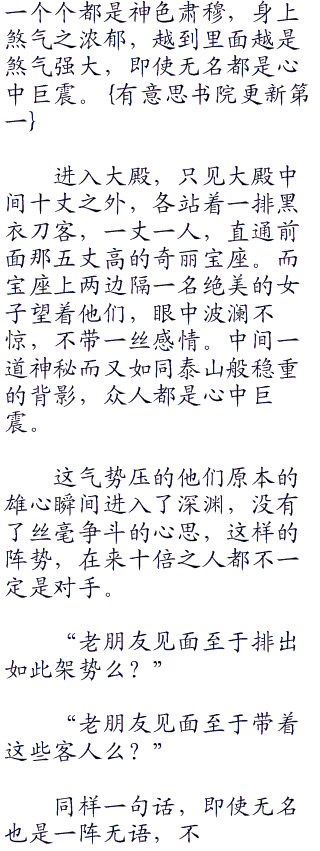 一个个都是神色肃穆，身上
煞气之浓郁，越到里面越是
煞气强大，即使无名都是心
中巨震。{有意思书院更新第
一}
进入大殿，只见大殿中
间十丈之外，各站着一排黑
衣刀客，一丈一人，直通前
面那五丈高的奇丽宝座。而
宝座上两边隔一名绝美的女
子望着他们，眼中波澜不
惊，不带一丝感情。中间一
道神秘而又如同泰山般稳重
的背影，众人都是心中巨
震。
这气势压的他们原本的
雄心瞬间进入了深渊，没有
了丝毫争斗的心思，这样的
阵势，在来十倍之人都不一
定是对手。
“老朋友见面至于排出
如此架势么？”
“老朋友见面至于带着
这些客人么？”
同样一句话，即使无名
也是一阵无语，不